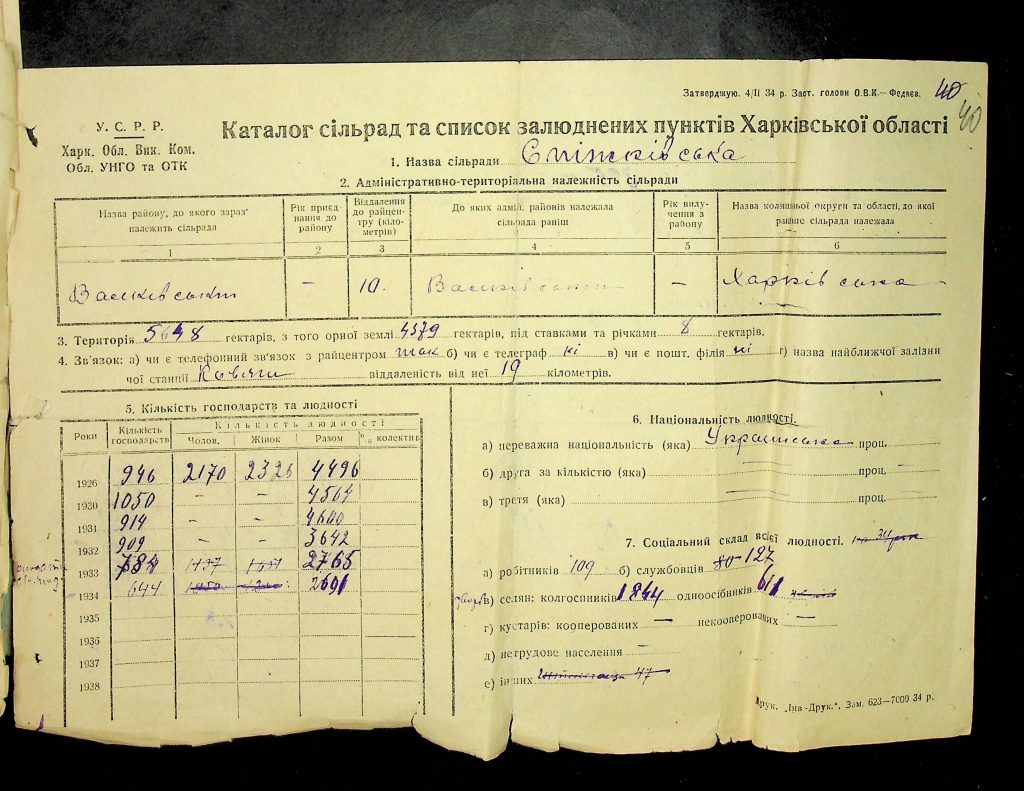 Затверджую. 4/II 34 р. Заст. голови О.В.К.— Федяєв.
40
40
У. С. Р. Р.
Харк. Обл. Вик. Ком.
Обл. УНГО та ОТК
Каталог сільрад та список залюднених пунктів Харківської області
1. Назва сільради Сніжківська
2. Адміністративно-територіальна належність сільради
Назва району, до якого зараз належить сільрада
Рік приєднання до району
Віддалення до райцентру (кілометрів)
До яких адмін. районів належала сільрада раніш
Рік вилучення з району
Назва колишньої округи та області, до якої раніше сільрада належала
1 2 3 4 5 6
Валківський — 10. Валківський — Харківська
3. Територія 5648 гектарів, з того орної землі 4379 гектарів, під ставками та річками 8 гектарів.
4. Зв'язок: а) чи є телефонний зв'язок з райцентром так б) чи є телеграф ні в) чи є пошт. філія ні г) назва найближчої залізни
чої станції Ков'яги віддаленість від неї 19 кілометрів.
5. Кількість господарств та людності
Роки Кількість господарств Кількість людності
Чолов. Жінок Разом % колектив
1926 946 2170 2326 4496
1930 1050 — — 4564
1931 914 — — 4600
1932 909 3642
1933 784 2765
1934 644
1935
1936
1937
1938
6. Національність людності.
а) переважна національність (яка) Українська проц.
б) друга за кількістю (яка) — проц. —
в) третя (яка) — проц.
7. Соціальний склад всієї людності. на 34 рік
а) робітників 109 б) службовців 80 127
в) селян: колгоспників 1844 одноосібників 611
г) кустарів: кооперованих — некооперованих —
д) нетрудове населення —
е) інших 47
Друк. „Інв-Друк.“. Зам. 623—7000 34 р.